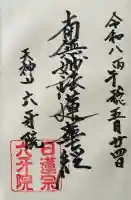 令和八丙午歳五月廿四日
南無妙法蓮華経
天神山六牙院
日蓮宗
六牙院